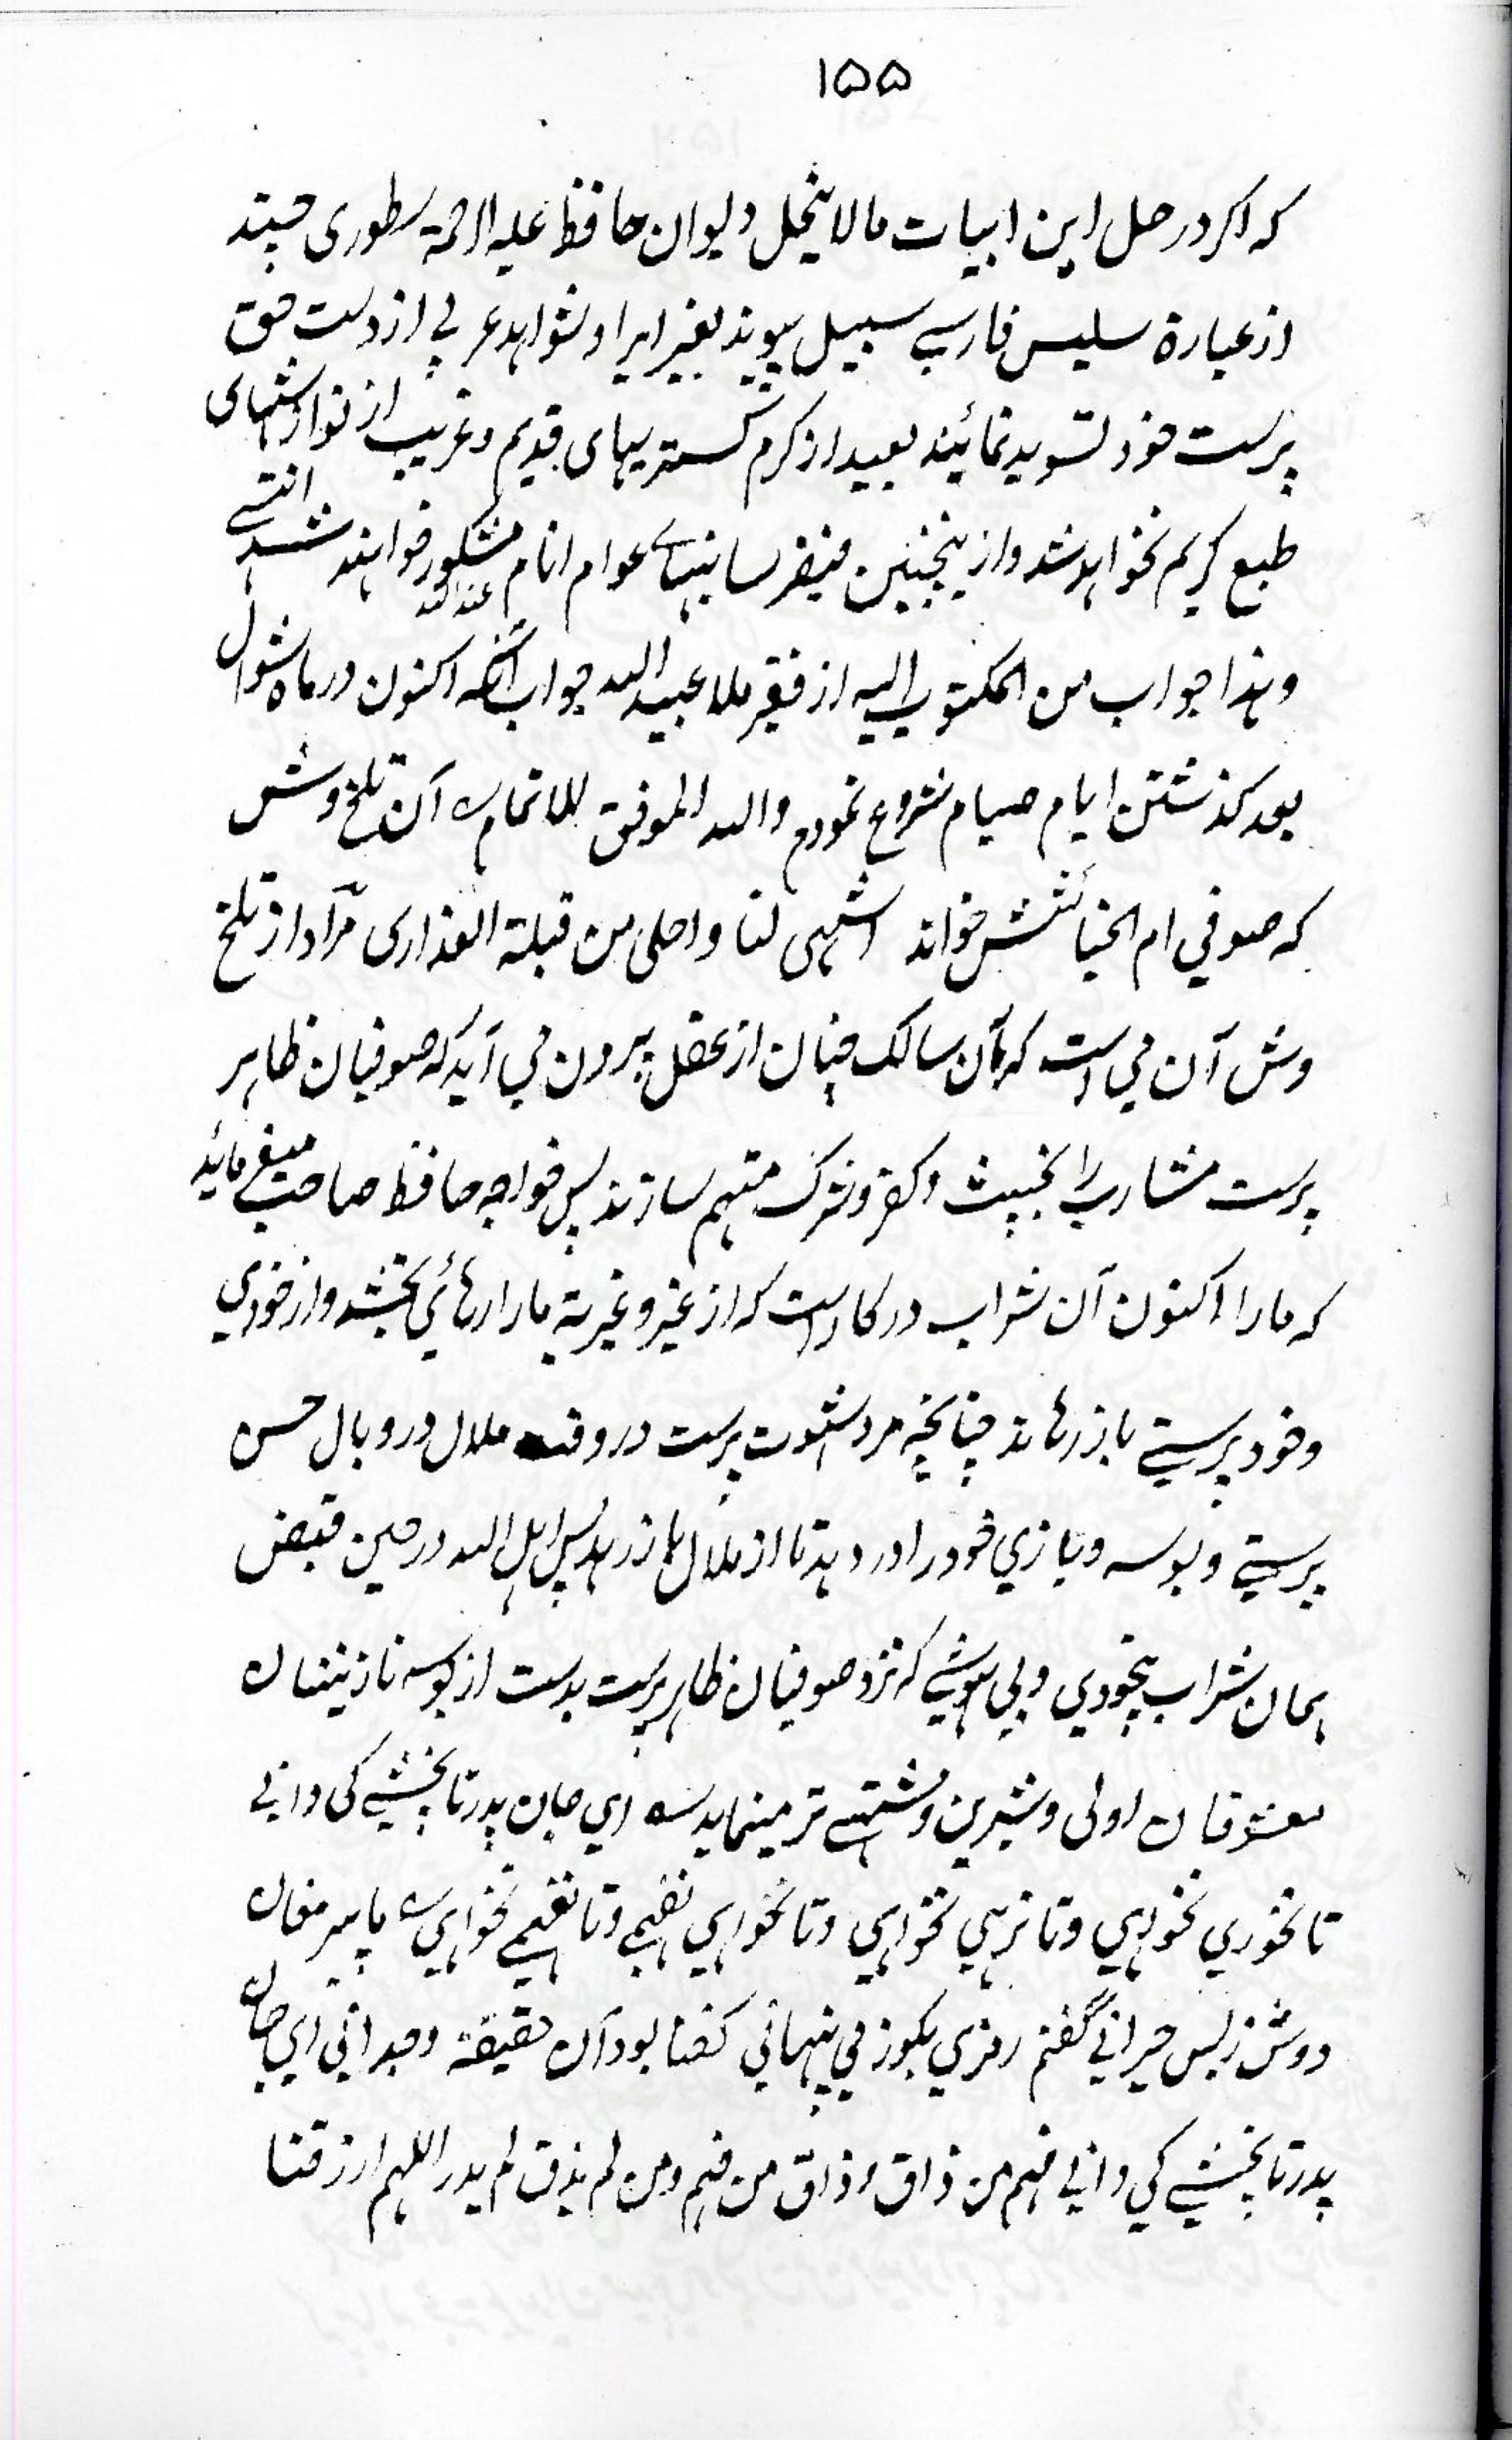 ۱۵۵
که اکر در حل این ابیات مالاینحل دیوان حافظ علیه الرحمة سطوری چند
از عبارة سلیس فارسی سبیل پیوند بغیر ایراد شواهد عربی از دست حق
پرست خود تسوید نمائیند بعید از کرم گستریهای قدیم و غریب از نوازشهای
طبع کریم نخواهد شد و از ینچنین فیض رسانیهای عوام انام مشکور عند الله خواهند شد انتهی
وهذا جواب من المکتوب الیه از فقیر ملا عبید الله جواب آنکه اکنون در ماه شوال
بعد کذشتن ایام صیام شروع نمودم والله الموفق للاتمام س آن تلخ وش
که صوفی ام الخبائثش خواند اشهی لنا و احلی من قبلة العذاری مراد از تلخ
وش آن می است که بآن سالک چنان از عقل بیرون می آید که صوفیان ظاهر
پرست مشارب را بخبیث و کفر و شرک متهم سازند پس خواجه حافظ صاحب میفرمائید
که مارا اکنون آن شراب در کار است که از غیر و غیریة مارا رهائی بخشد و از خودی
و خود پرستی باز رهاند چنانچه مرد شهوت پرست در وقت ملال در وبال حسن
پرستی و بوسه و بازی خود را در دهد تا از ملال باز رهد پس اهل الله در حین قبض
همان شراب بیخودی و بی هوشی که نزد صوفیان ظاهر پرست بدست از بوسه نازنینان
معشوقان اولی و شیرین و مشتهی تر مینماید س ای جان پدر تا نچشی کی دانی
تا نخوری نخواهی و تا نرهی نخواهی و تا نخواهی نفهمی و تا نفهمی نخواهی س با پیر مغان
دوش ز بس حیرانی گفتم رمزی بکوز می پنهانی کفتا بود آن حقیقة وجدانی ای جان
پدر تا نچشی کی دانی فهم من ذاق و ذاق من فهم و من لم یذق لم یدر اللهم ارزقنا